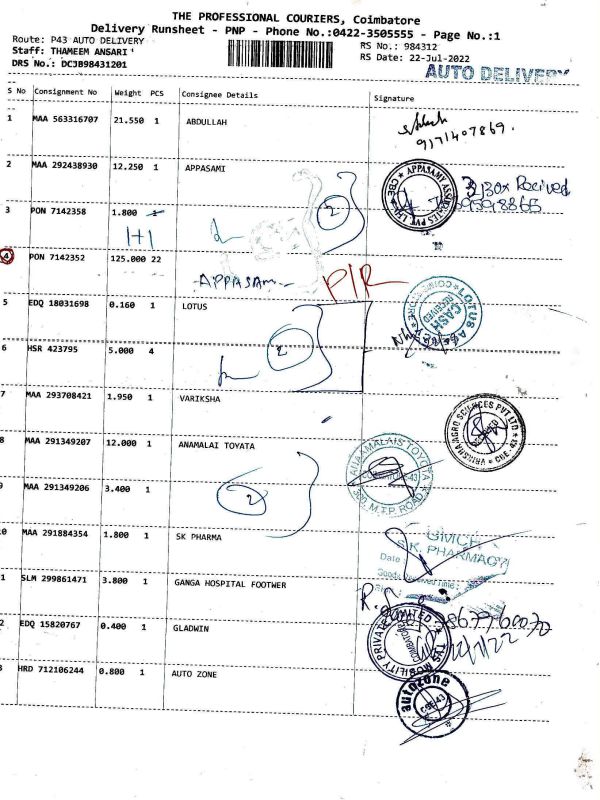 THE PROFESSIONAL COURIERS, Coimbatore
Delivery Runsheet - PNP - Phone No.:0422-3505555 - Page No.:1
Route: P43 AUTO DELIVERY
RS No.: 984312
Staff: THAMEEM ANSARI
RS Date: 22-Jul-2022
DRS No.: DCJB98431201
AUTO DELIVERY
S No Consignment No Weight PCS Consignee Details Signature
1 MAA 563316707 21.550 1 ABDULLAH
9171407869.
2 MAA 292438930 12.250 1 APPASAMI
APPASAMY ASSOCIATES PVT. LTD. CBE
3 PON 7142358 1.800 1
2
1+1
4 PON 7142352 125.000 22
APPASAMI
P/R
5 EDQ 18031698 0.160 1 LOTUS
CASH RECEIVED
6 HSR 423795 5.000 4
2
7 MAA 293708421 1.950 1 VARIKSHA
8 MAA 291349207 12.000 1 ANAMALAI TOYATA
ANAAMALAIS TOYOTA
9 MAA 291349206 3.400 1
2
10 MAA 291884354 1.800 1 SK PHARMA
GMCH
S.K. PHARMACY
Date :
11 SLM 299861471 3.800 1 GANGA HOSPITAL FOOTWER
12 EDQ 15820767 0.400 1 GLADWIN
TVS MOBILITY PRIVATE LIMITED
13 HRD 712106244 0.800 1 AUTO ZONE
autozone
CBE-43